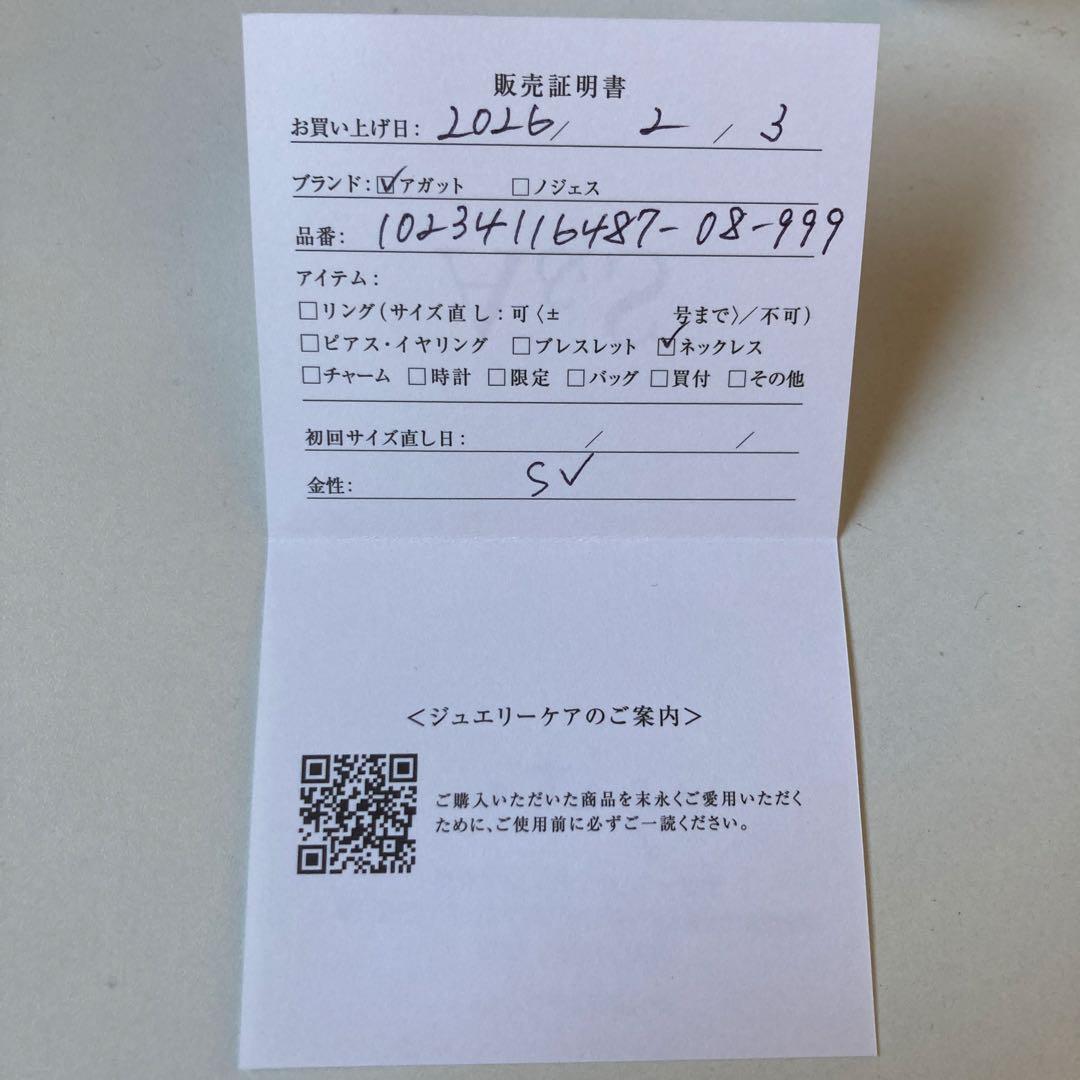 販売証明書
お買い上げ日: 2026/ 2 / 3
ブランド: ☑アガット □ノジェス
品番: 10234116487-08-999
アイテム:
□リング(サイズ直し: 可〈± 号まで〉/不可)
□ピアス・イヤリング □ブレスレット ☑ネックレス
□チャーム □時計 □限定 □バッグ □買付 □その他
初回サイズ直し日: / /
金性: SV
<ジュエリーケアのご案内>
ご購入いただいた商品を末永くご愛用いただく
ために、ご使用前に必ずご一読ください。